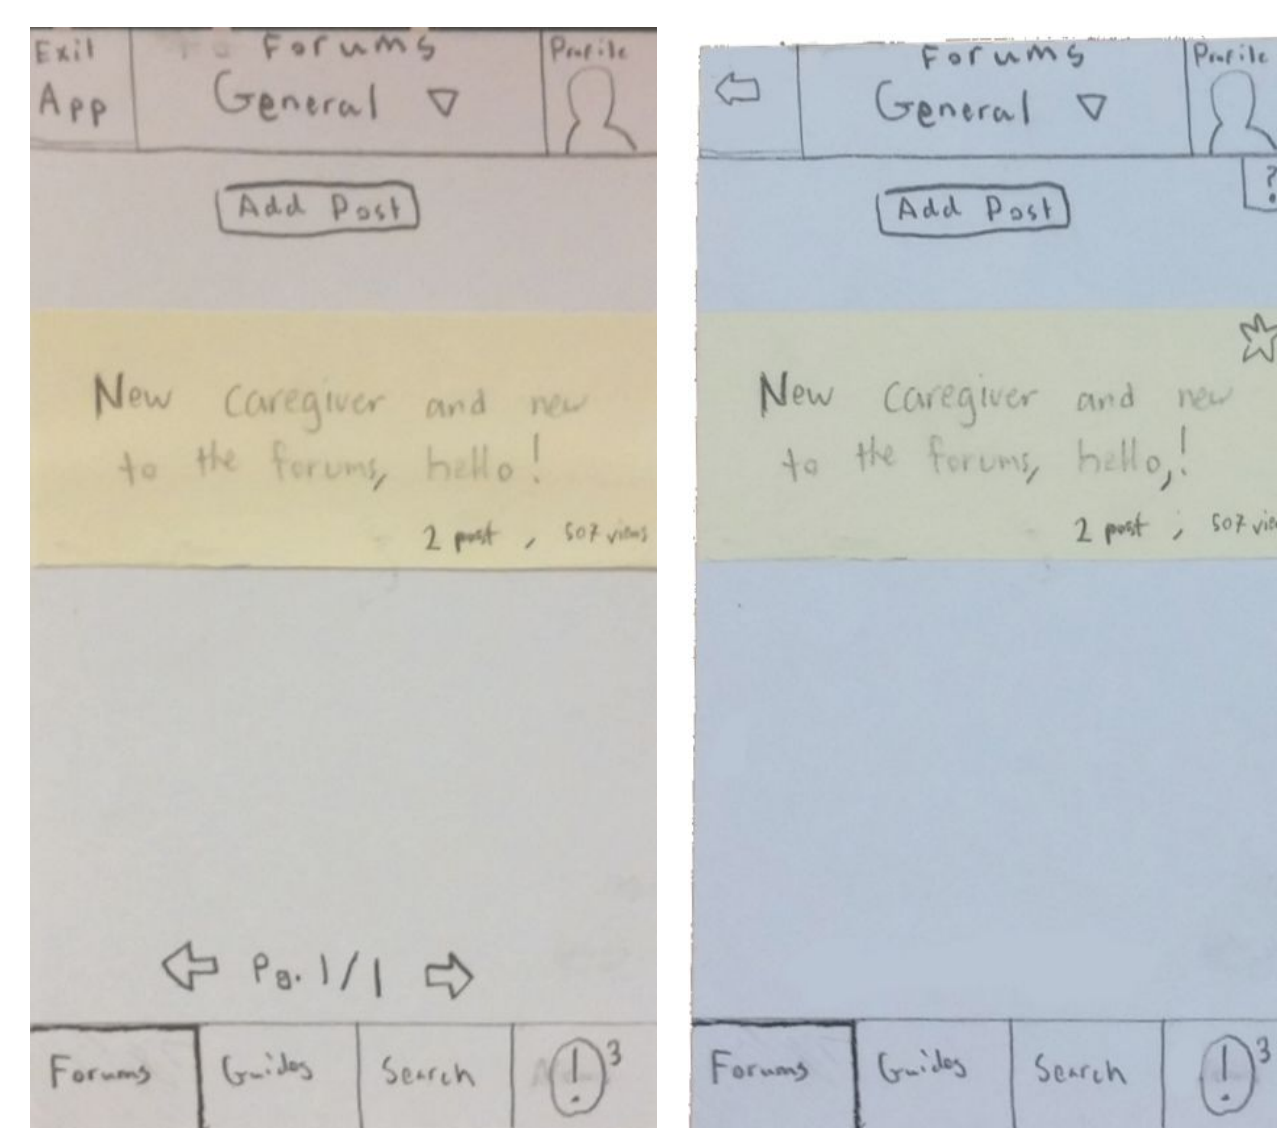 Exit
App
Forums
General
Profile
Add Post
New caregiver and new
to the forums, hello!
2 post, 507 views
Pg. 1/1
Forums
Guides
Search
! 3
Forums
General
Profile
?
Add Post
New caregiver and new
to the forums, hello,!
2 post, 507 vie
Forums
Guides
Search
! 3